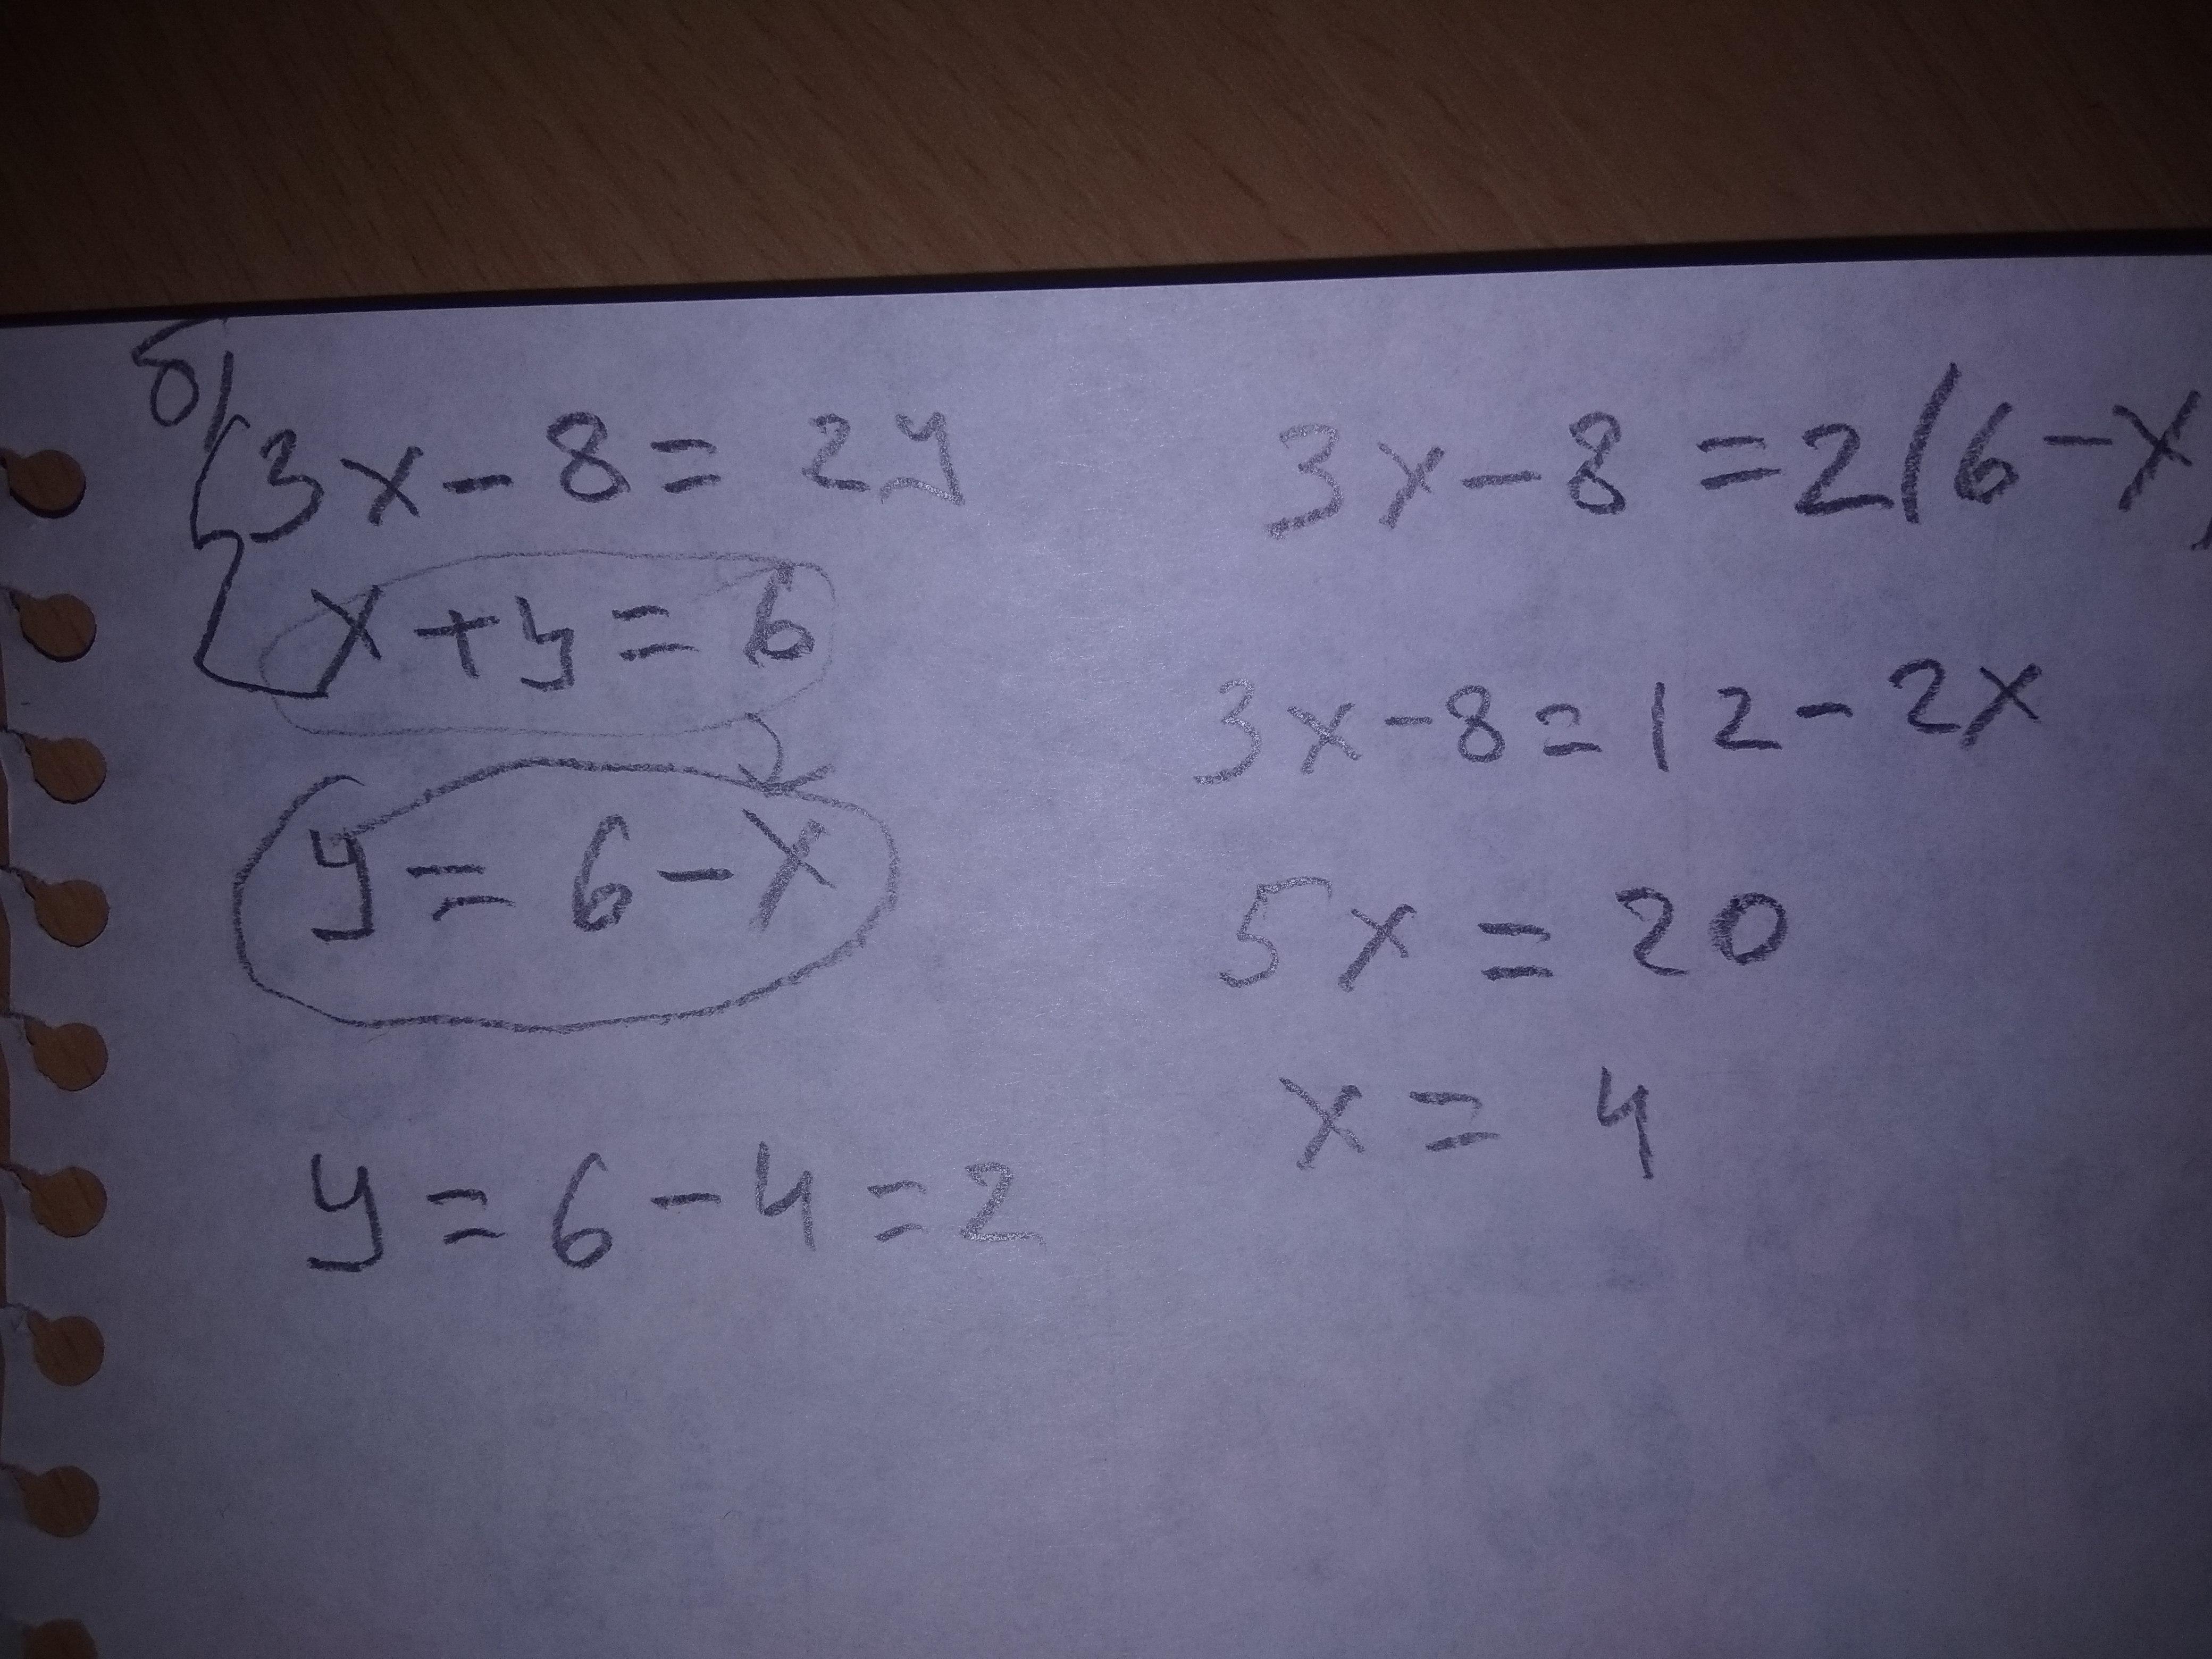 б)
3x - 8 = 2y
x + y = 6
y = 6 - x
y = 6 - 4 = 2
3x - 8 = 2(6 - x)
3x - 8 = 12 - 2x
5x = 20
x = 4